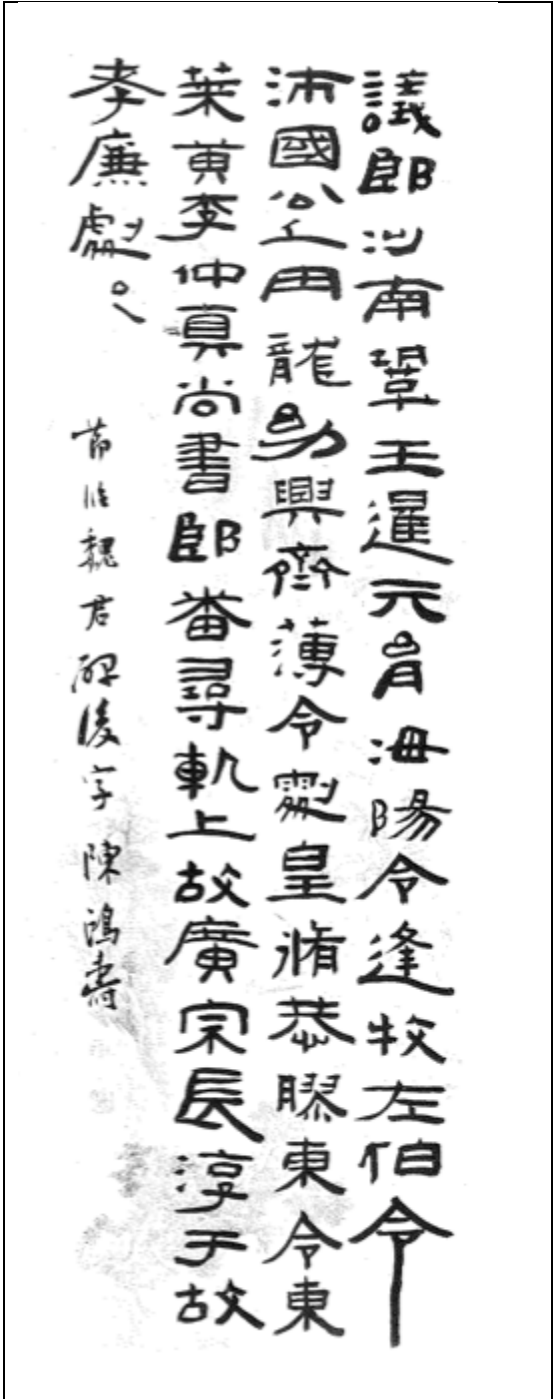 議郎河南鞏王暹元海陽令逢牧左伯令
沛國公丘龍幼興齊薄令皇脩恭膠東令東
萊黄李仲真尚書郎番尋軌上故廣宗長淳于故
孝廉
節臨魏君碑後字 陳鴻壽